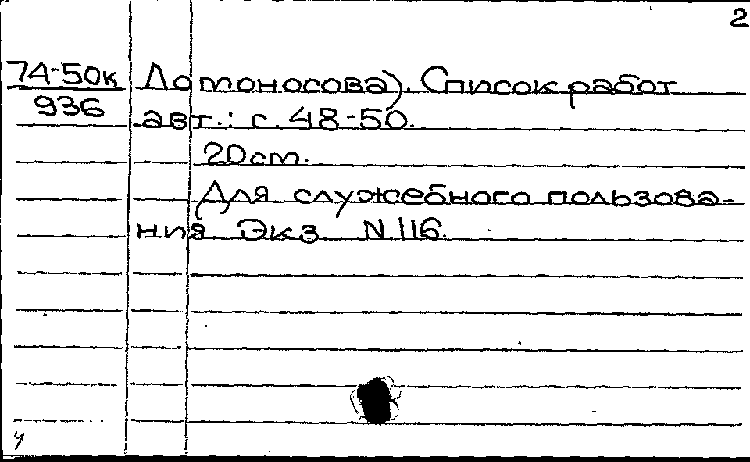 2
74-50к Ломоносова). Список работ
936 авт.: с. 48-50.
20см.
Для служебного пользова-
ния Экз N 116.